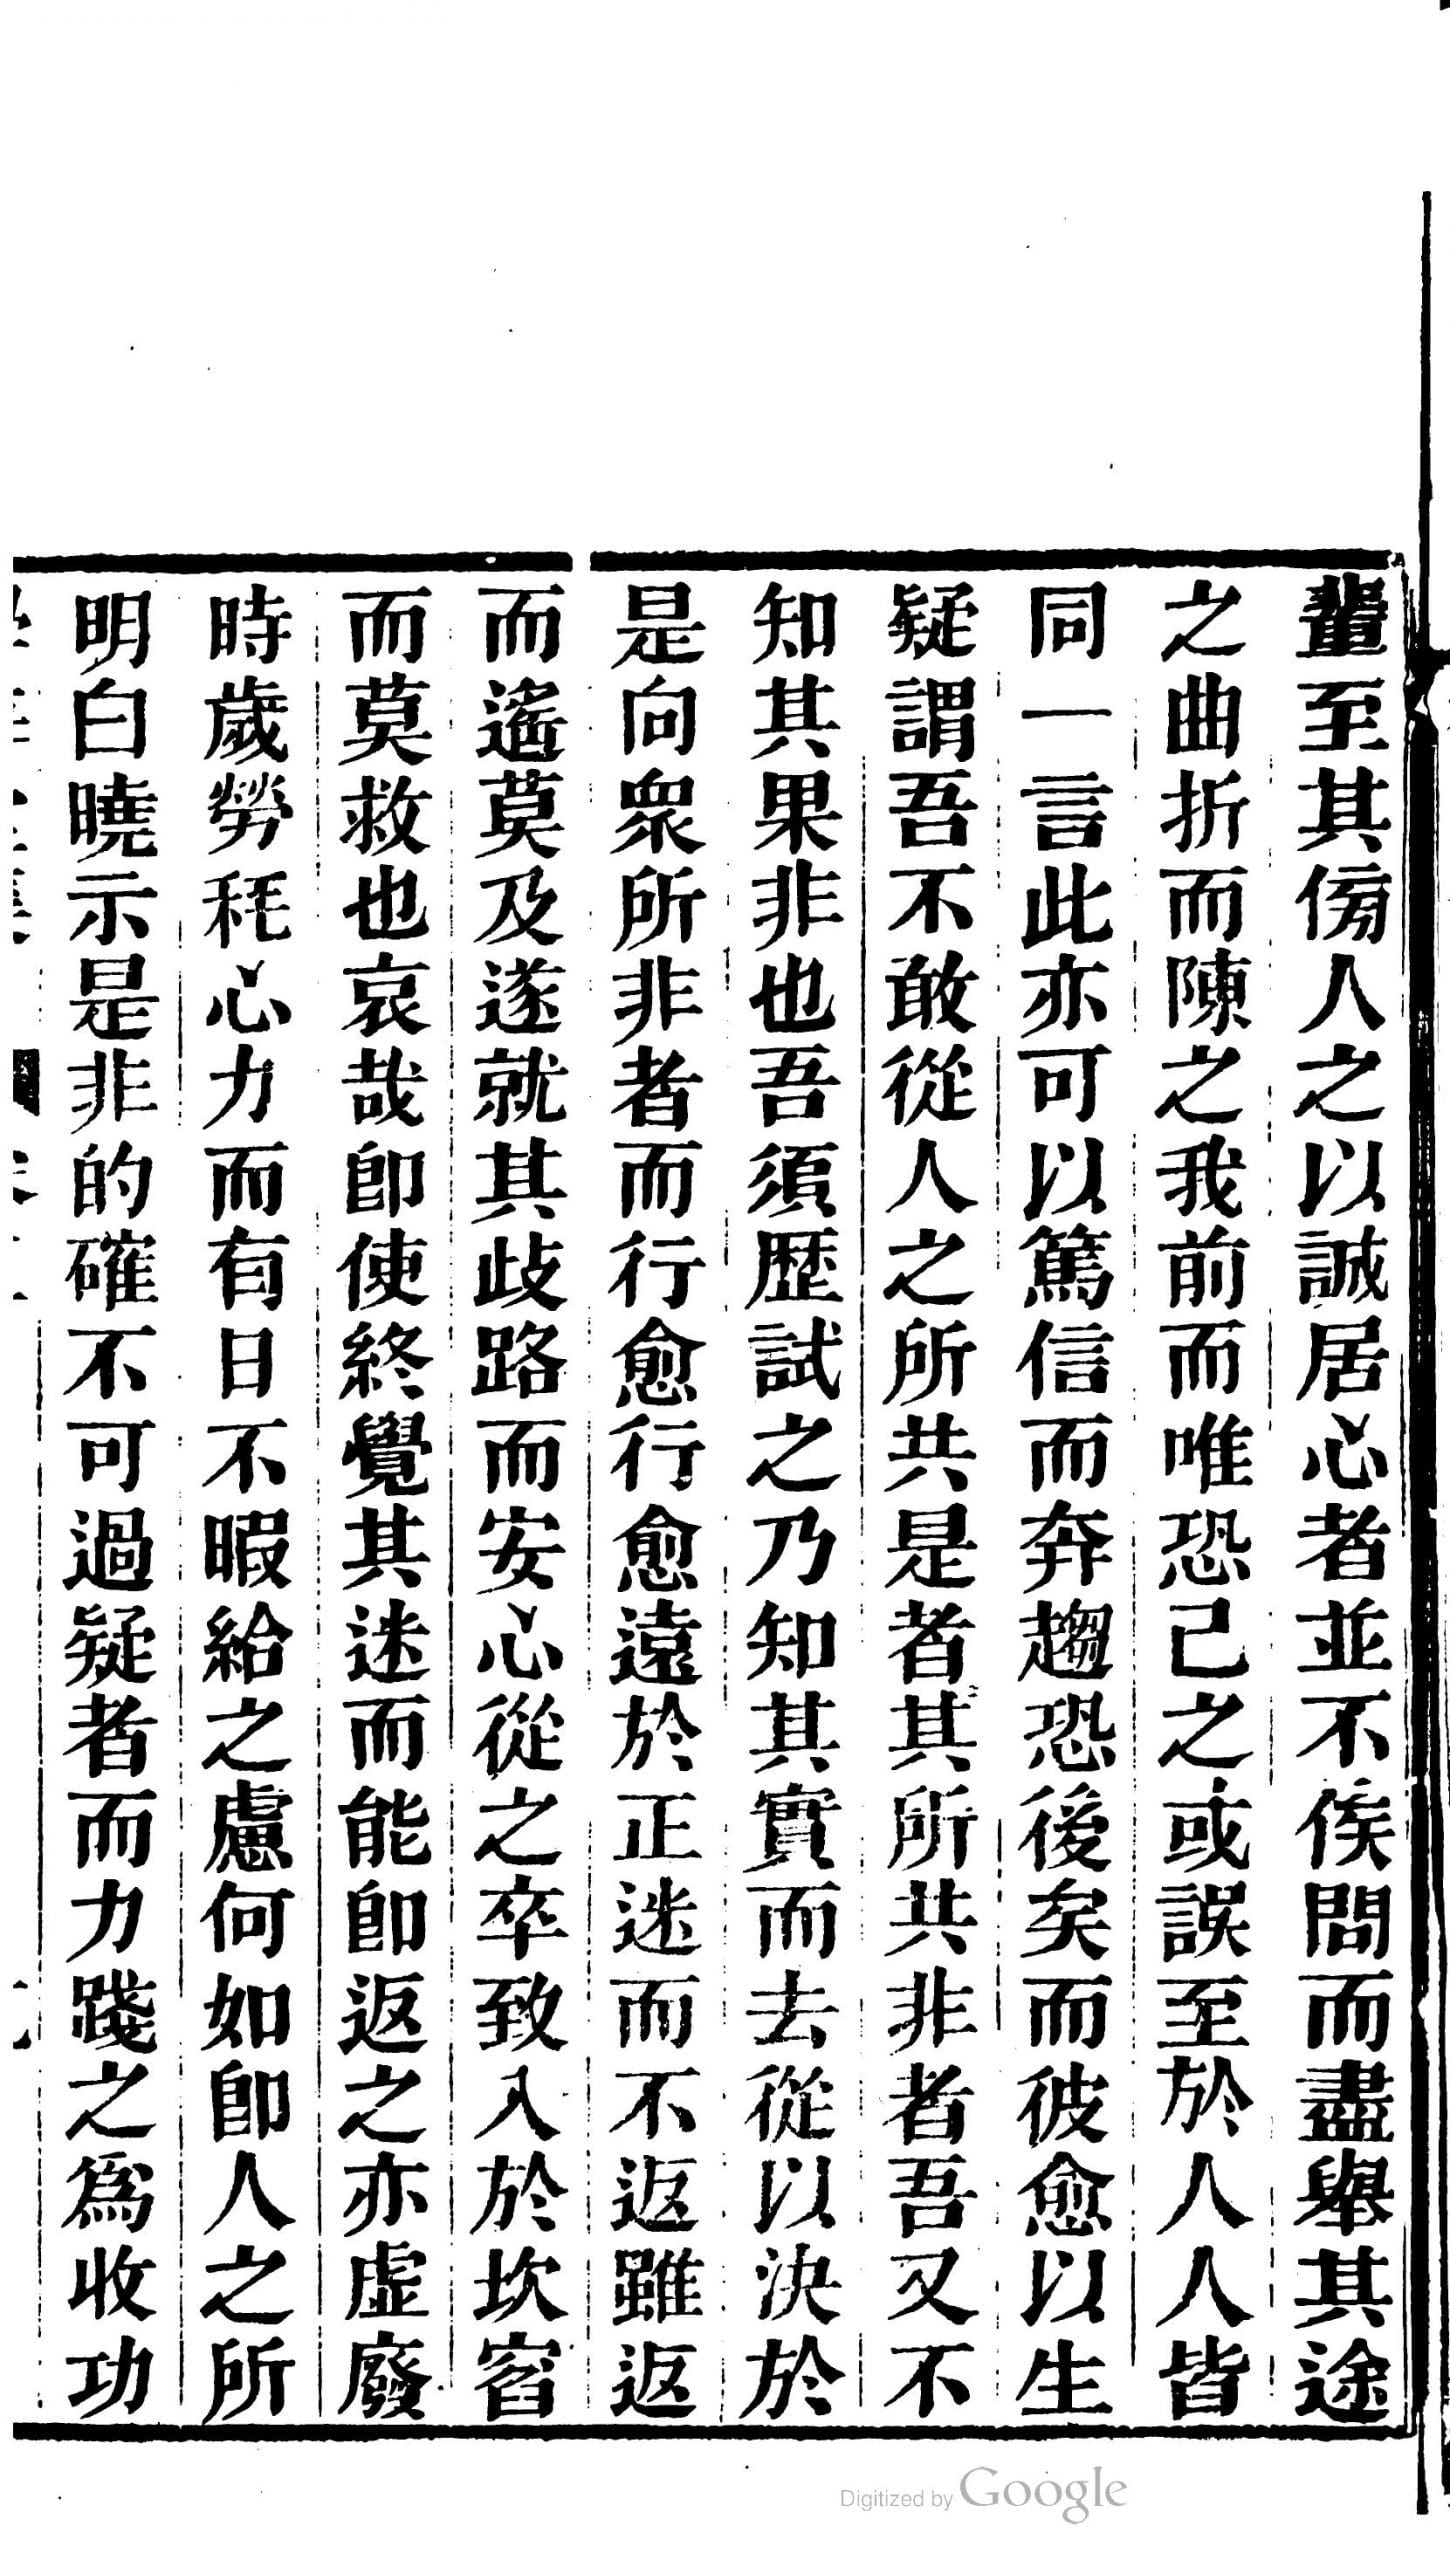 輩至其傍人之以誠居心者並不俟問而盡舉其途
之曲折而陳之我前而唯恐己之或誤至於人人皆
同一言此亦可以篤信而奔趨恐後矣而彼愈以生
疑謂吾不敢從人之所共是者其所共非者吾又不
知其果非也吾須歷試之乃知其實而去從以決於
是向衆所非者而行愈行愈遠於正迷而不返雖返
而遙莫及遂就其歧路而安心從之卒致入於坎窞
而莫救也哀哉卽使終覺其迷而能卽返之亦虛廢
時歲勞秏心力而有日不暇給之慮何如卽人之所
明白曉示是非的確不可過疑者而力踐之爲收功
Digitized by Google